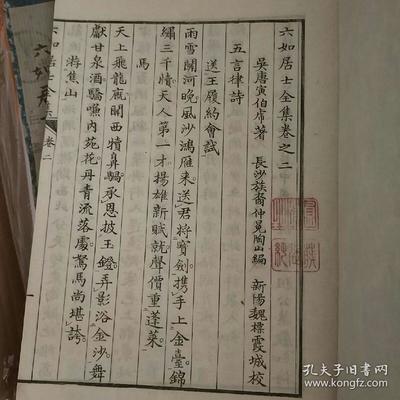 六如居士全集卷之二
吳唐寅伯虎著 長沙族裔仲冕陶山編 新陽魏標霞城校
五言律詩
送王履約會試
雨雪關河晚風沙鴻雁來送君將寶劍攜手上金臺錦
繡三千牘天人第一才揚雄新賦就聲價重蓬萊
馬
天上飛龍廄閑西犢鼻騧承恩披玉鐙弄影浴金沙舞
獻甘泉酒驕嘶內苑花丹青流落處駑馬尚堪誇
游焦山
六如居士全集
卷二
孔夫子旧书网
www.kongfz.com